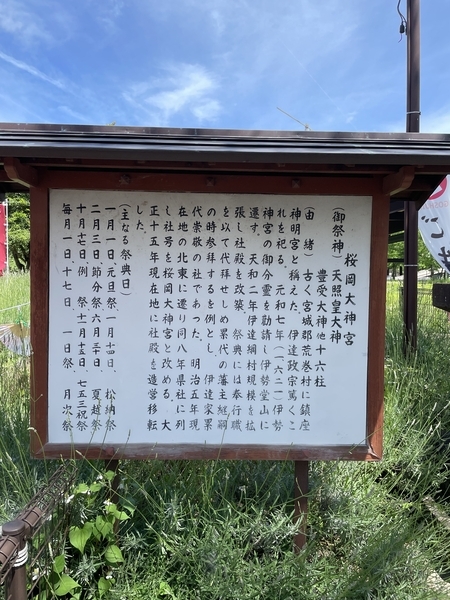 桜岡大神宮
(御祭神)天照皇大神
豊受大神他十六柱
(由緒)古く宮城郡荒巻村に鎮座
神明宮と称え、伊達政宗篤くこ
れを祀る。元和七年(一六二一)伊勢
神宮の御分霊を勧請し伊勢堂山に
遷す。天和二年伊達綱村規模を拡
張し社殿を改築。祭典には奉行職
を以て代拝せしめ累代の藩主経嗣
の時参拝するを例とし、伊達家累
代崇敬の社であった。明治五年現
在地の北東に遷り同八年県社に列
し社号を桜岡大神宮と改める。大
正十五年現在地に社殿を造営移転
した。
(主なる祭典日)
一月一日、元旦祭、一月十四日、松納祭
二月三日、節分祭、六月三十日、夏越祭
十月十七日、例祭、十一月十五日、七五三祝祭
毎月一日、十七日、一日祭、月次祭